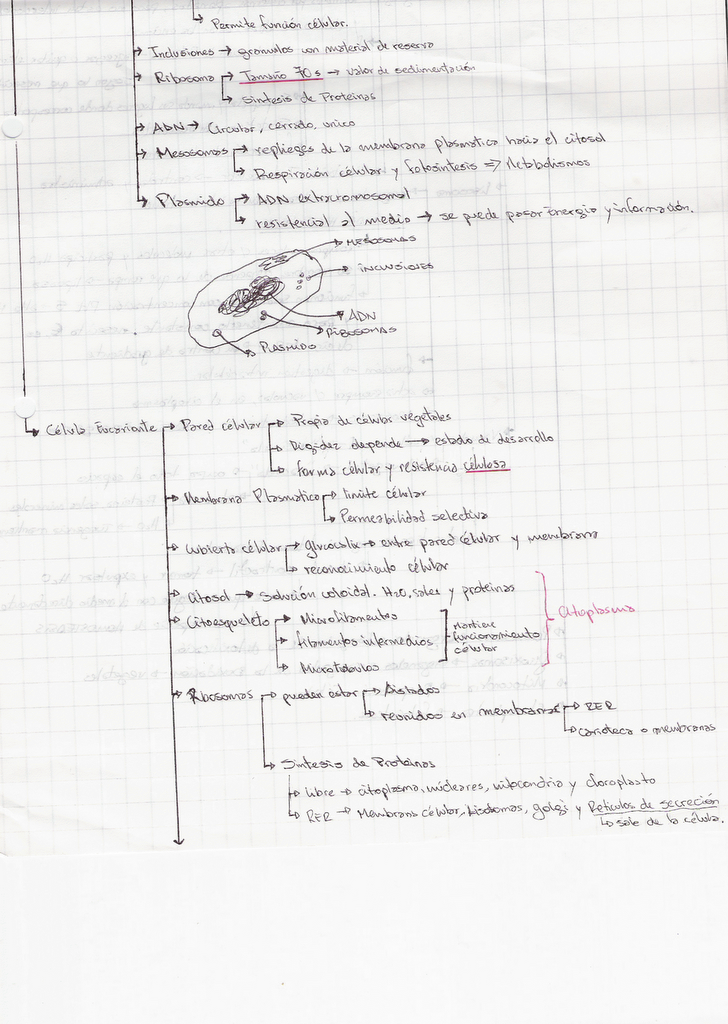 ↳ Permite función célular.
→ Inclusiones → granulos con material de reserva
→ Ribosoma → Tamaño 70s → valor de sedimentación
↳ Sintesis de Proteinas
→ ADN → Circular, cerrado, unico
→ Mesosomas → repliegues de la membrana plasmatica hacia el citosol
↳ Respiración célular y fotosintesis ⇒ Metabolismos
→ Plasmido → ADN extracromosomal
↳ resistencial al medio → se puede pasar energia y información.
→ MESOSOMAS
→ INCLUSIONES
→ ADN
→ RIBOSOMAS
→ PLASMIDO
↳ Célula Eucarionte → Pared célular → Propia de células vegetales
→ Rigidez depende → estado de desarrollo
↳ forma célular y resistencia célulosa
→ Membrana Plasmatica → limite célular
↳ Permeabilidad selectiva
→ cubierta célular → glycocalix → entre pared célular y membrana
↳ reconocimiento célular
→ citosol → Solución coloidal. H2O, sales y proteinas
→ Citoesqueleto → Microfilamentos
→ filamentos intermedios
→ Microtubulos
Mantiene funcionamiento célular
Citoplasma
→ Ribosomas → pueden estar → Aislados
↳ reunidos en membranas → RER
↳ carioteca o membranas
↳ Sintesis de Proteinas
→ libre → citoplasma, núcleares, mitocondria y cloroplasto
↳ RER → Membrana célular, lisosomas, golgi y Reticulos de secreción
↳ sale de la célula.